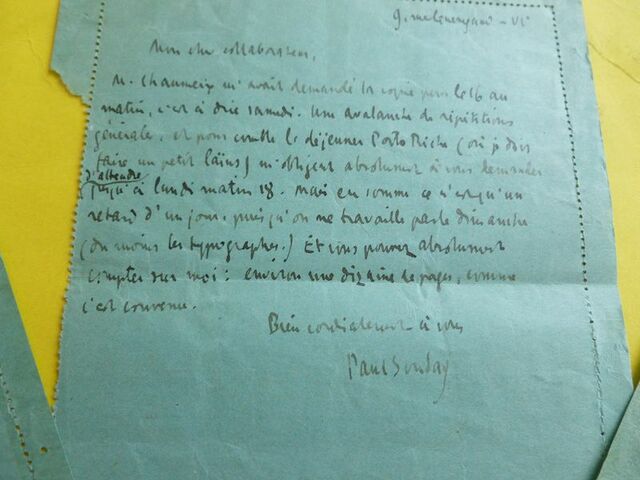 9, rue Guénégaud - VIe
Mon cher collaborateur,
M. Chaumeix m'avait demandé la copie pour le 16 au
matin, c'est à dire samedi. Une avalanche de répétitions
générales, et pour comble le déjeuner Porto Riche (où je dois
faire un petit laïus) m'obligent absolument à vous demander
d'attendre
jusqu'à lundi matin 18. Mais en somme ce n'est qu'un
retard d'un jour, puisqu'on ne travaille pas le dimanche
(du moins les typographes.) Et vous pouvez absolument
compter sur moi : environ une dizaine de pages, comme
c'est convenu.
Bien cordialement à vous
Paul Souday